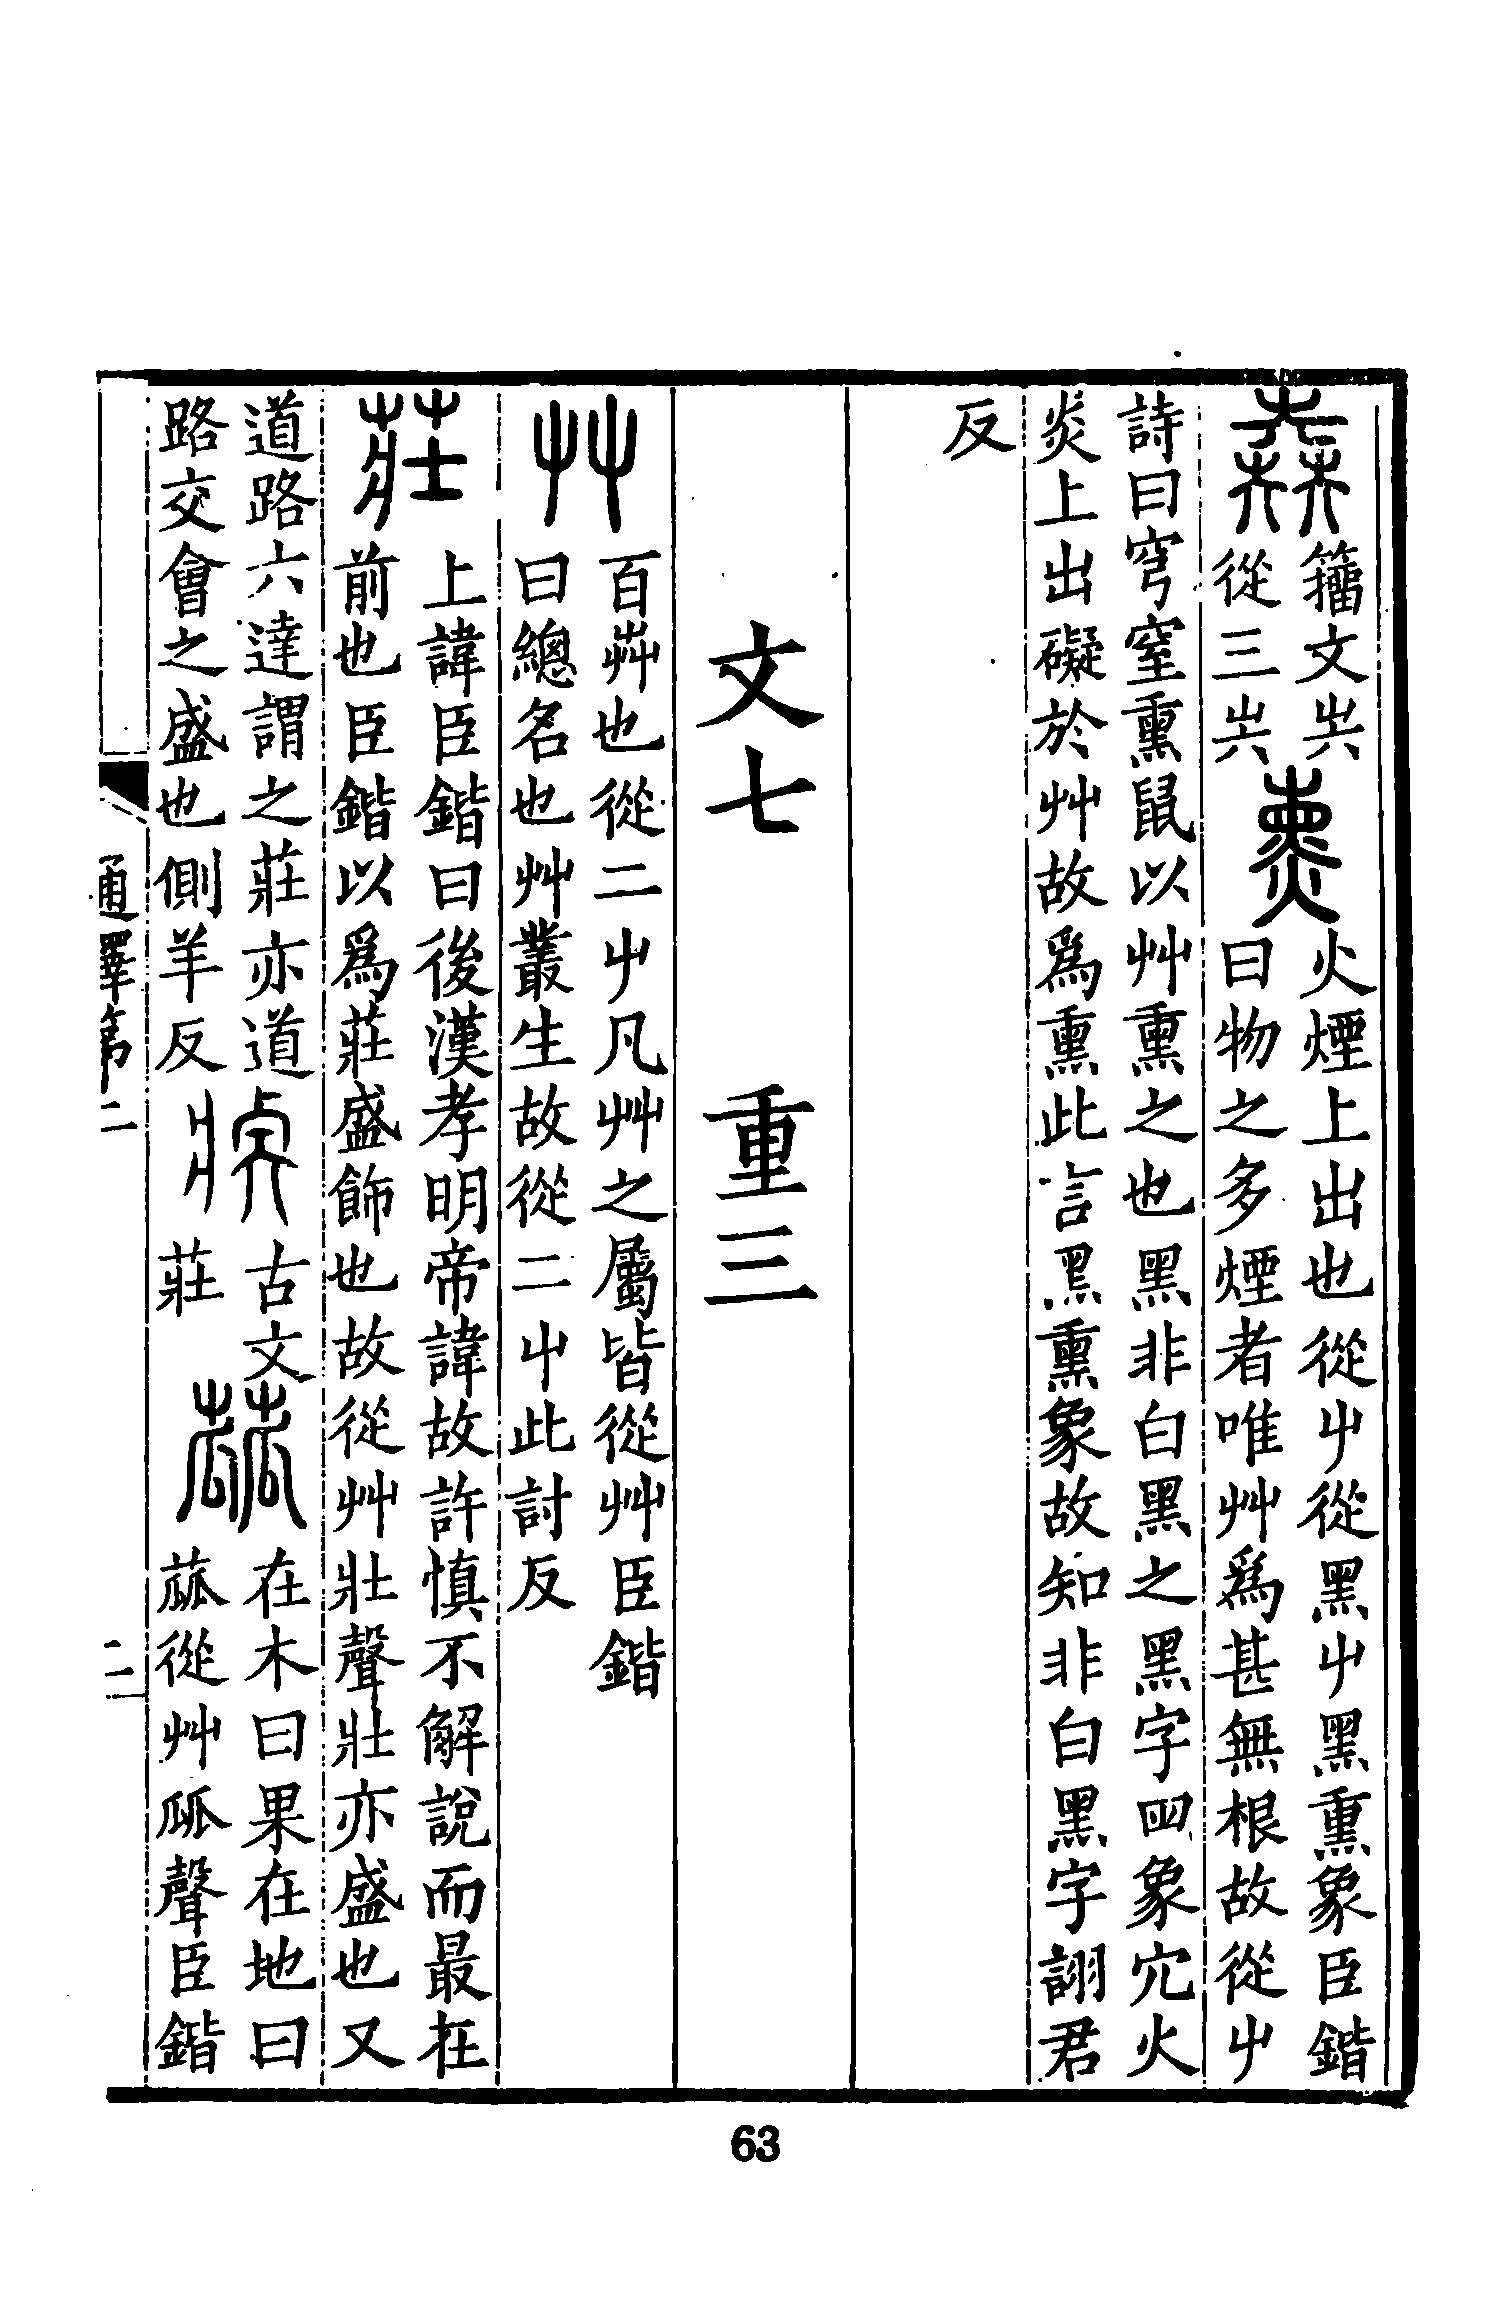 籒文㞢
從三㞢
火煙上出也從屮從黑屮黑熏象臣鍇
曰物之多煙者唯艸爲甚無根故從屮
詩曰穹窒熏鼠以艸熏之也黑非白黑之黑字𡆧象穴火
炎上出礙於艸故爲熏此言黑熏象故知非白黑字詡君
反
文七 重三
百芔也從二屮凡艸之屬皆從艸臣鍇
曰總名也艸叢生故從二屮此討反
上諱臣鍇曰後漢孝明帝諱故許慎不解說而最在
前也臣鍇以爲莊盛飾也故從艸壯聲壯亦盛也又
道路六達謂之莊亦道
路交會之盛也側羊反
古文
莊
在木曰果在地曰
蓏從艸㼌聲臣鍇
通釋第二
二
63